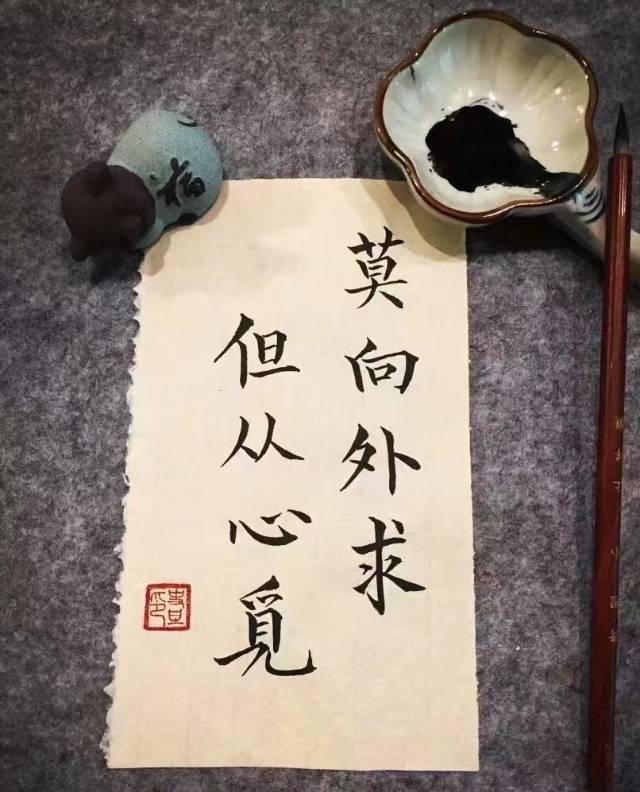 莫向外求
但从心觅
福